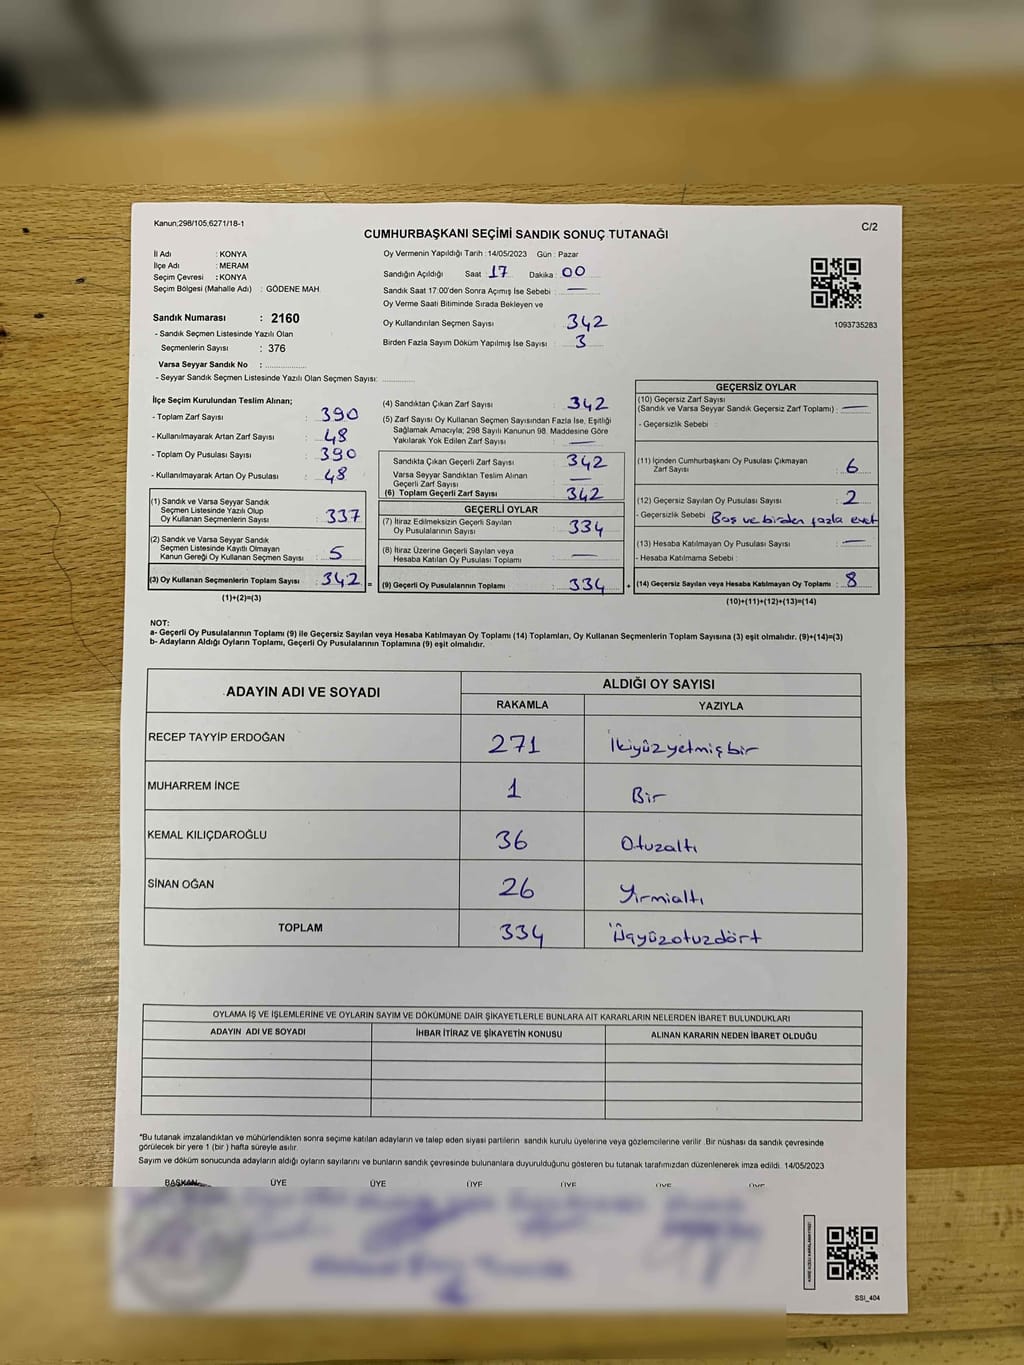 Kanun;298/105,6271/18-1
C/2
CUMHURBAŞKANI SEÇİMİ SANDIK SONUÇ TUTANAĞI
İl Adı : KONYA
İlçe Adı : MERAM
Seçim Çevresi : KONYA
Seçim Bölgesi (Mahalle Adı) : GÖDENE MAH.
Sandık Numarası : 2160
- Sandık Seçmen Listesinde Yazılı Olan
Seçmenlerin Sayısı : 376
Varsa Seyyar Sandık No :
- Seyyar Sandık Seçmen Listesinde Yazılı Olan Seçmen Sayısı:
Oy Vermenin Yapıldığı Tarih : 14/05/2023 Gün : Pazar
Sandığın Açıldığı Saat : 17 Dakika : 00
Sandık Saat 17:00'den Sonra Açımış İse Sebebi : —
Oy Verme Saati Bitiminde Sırada Bekleyen ve
Oy Kullandırılan Seçmen Sayısı 342
Birden Fazla Sayım Döküm Yapılmış İse Sayısı : 3
1093735283
İlçe Seçim Kurulundan Teslim Alınan;
- Toplam Zarf Sayısı : 390
- Kullanılmayarak Artan Zarf Sayısı : 48
- Toplam Oy Pusulası Sayısı : 390
- Kullanılmayarak Artan Oy Pusulası : 48
(1) Sandık ve Varsa Seyyar Sandık
Seçmen Listesinde Yazılı Olup
Oy Kullanan Seçmenlerin Sayısı : 337
(2) Sandık ve Varsa Seyyar Sandık
Seçmen Listesinde Kayıtlı Olmayan
Kanun Gereği Oy Kullanan Seçmen Sayısı : 5
(3) Oy Kullanan Seçmenlerin Toplam Sayısı : 342 =
(1)+(2)=(3)
(4) Sandıktan Çıkan Zarf Sayısı : 342
(5) Zarf Sayısı Oy Kullanan Seçmen Sayısından Fazla İse, Eşitliği
Sağlamak Amacıyla; 298 Sayılı Kanunun 98. Maddesine Göre
Yakılarak Yok Edilen Zarf Sayısı : —
Sandıkta Çıkan Geçerli Zarf Sayısı : 342
Varsa Seyyar Sandıktan Teslim Alınan
Geçerli Zarf Sayısı : —
(6) Toplam Geçerli Zarf Sayısı : 342
GEÇERLİ OYLAR
(7) İtiraz Edilmeksizin Geçerli Sayılan
Oy Pusulalarının Sayısı : 334
(8) İtiraz Üzerine Geçerli Sayılan veya
Hesaba Katılan Oy Pusulası Toplamı : —
(9) Geçerli Oy Pusulalarının Toplamı : 334 +
GEÇERSİZ OYLAR
(10) Geçersiz Zarf Sayısı
(Sandık ve Varsa Seyyar Sandık Geçersiz Zarf Toplamı) : —
- Geçersizlik Sebebi :
(11) İçinden Cumhurbaşkanı Oy Pusulası Çıkmayan
Zarf Sayısı : 6
(12) Geçersiz Sayılan Oy Pusulası Sayısı : 2
- Geçersizlik Sebebi : Boş ve birden fazla evet
(13) Hesaba Katılmayan Oy Pusulası Sayısı : —
- Hesaba Katılmama Sebebi :
(14) Geçersiz Sayılan veya Hesaba Katılmayan Oy Toplamı : 8
(10)+(11)+(12)+(13)=(14)
NOT:
a- Geçerli Oy Pusulalarının Toplamı (9) ile Geçersiz Sayılan veya Hesaba Katılmayan Oy Toplamı (14) Toplamları, Oy Kullanan Seçmenlerin Toplam Sayısına (3) eşit olmalıdır. (9)+(14)=(3)
b- Adayların Aldığı Oyların Toplamı, Geçerli Oy Pusulalarının Toplamına (9) eşit olmalıdır.
ADAYIN ADI VE SOYADI
ALDIĞI OY SAYISI
RAKAMLA YAZIYLA
RECEP TAYYİP ERDOĞAN 271 İkiyüzyetmişbir
MUHARREM İNCE 1 Bir
KEMAL KILIÇDAROĞLU 36 Otuzaltı
SİNAN OĞAN 26 Yirmialtı
TOPLAM 334 Üçyüzotuzdört
OYLAMA İŞ VE İŞLEMLERİNE VE OYLARIN SAYIM VE DÖKÜMÜNE DAİR ŞİKAYETLERLE BUNLARA AİT KARARLARIN NELERDEN İBARET BULUNDUKLARI
ADAYIN ADI VE SOYADI İHBAR İTİRAZ VE ŞİKAYETİN KONUSU ALINAN KARARIN NEDEN İBARET OLDUĞU
*Bu tutanak imzalandıktan ve mühürlendikten sonra seçime katılan adayların ve talep eden siyasi partilerin sandık kurulu üyelerine veya gözlemcilerine verilir. Bir nüshası da sandık çevresinde
görülecek bir yere 1 (bir) hafta süreyle asılır.
Sayım ve döküm sonucunda adayların aldığı oyların sayılarını ve bunların sandık çevresinde bulunanlara duyurulduğunu gösteren bu tutanak tarafımızdan düzenlenerek imza edildi. 14/05/2023
BAŞKAN ÜYE ÜYE ÜYE ÜYE ÜYE ÜYE
SSI_404